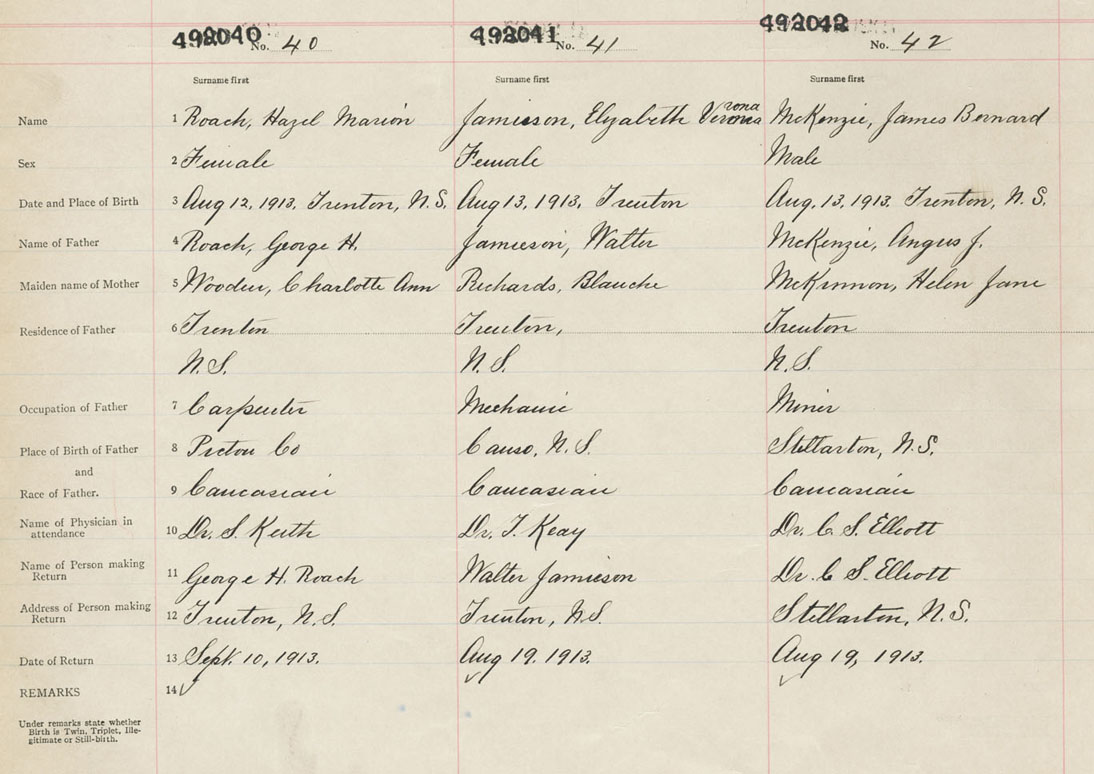 492040 No. 40 492041 No. 41 492042 No. 42
Surname first Surname first Surname first
Name 1 Roach, Hazel Marion Jamieson, Elyzabeth Verona rona McKenzie, James Bernard
Sex 2 Female Female Male
Date and Place of Birth 3 Aug 12, 1913, Trenton, N.S. Aug 13, 1913, Trenton Aug. 13, 1913 Trenton, N.S.
Name of Father 4 Roach, George H. Jamieson, Walter McKenzie, Angus J.
Maiden name of Mother 5 Wooden, Charlotte Ann Richards, Blanche McKinnon, Helen Jane
Residence of Father 6 Trenton Trenton, Trenton
N.S. N.S. N.S.
Occupation of Father 7 Carpenter Mechanic Miner
Place of Birth of Father 8 Pictou Co Canso, N.S. Stellarton, N.S.
and
Race of Father. 9 Caucasian Caucasian Caucasian
Name of Physician in 10 Dr. S. Keith Dr. T. Keay Dr. C. S. Elliott
attendance
Name of Person making 11 George H. Roach Walter Jamieson Dr. C S. Elliott
Return
Address of Person making 12 Trenton, N.S. Trenton, N.S. Stellarton, N.S.
Return
Date of Return 13 Sept. 10, 1913. Aug 19. 1913. Aug 19, 1913.
REMARKS 14
Under remarks state whether
Birth is Twin, Triplet, Ille-
gitimate or Still-birth.